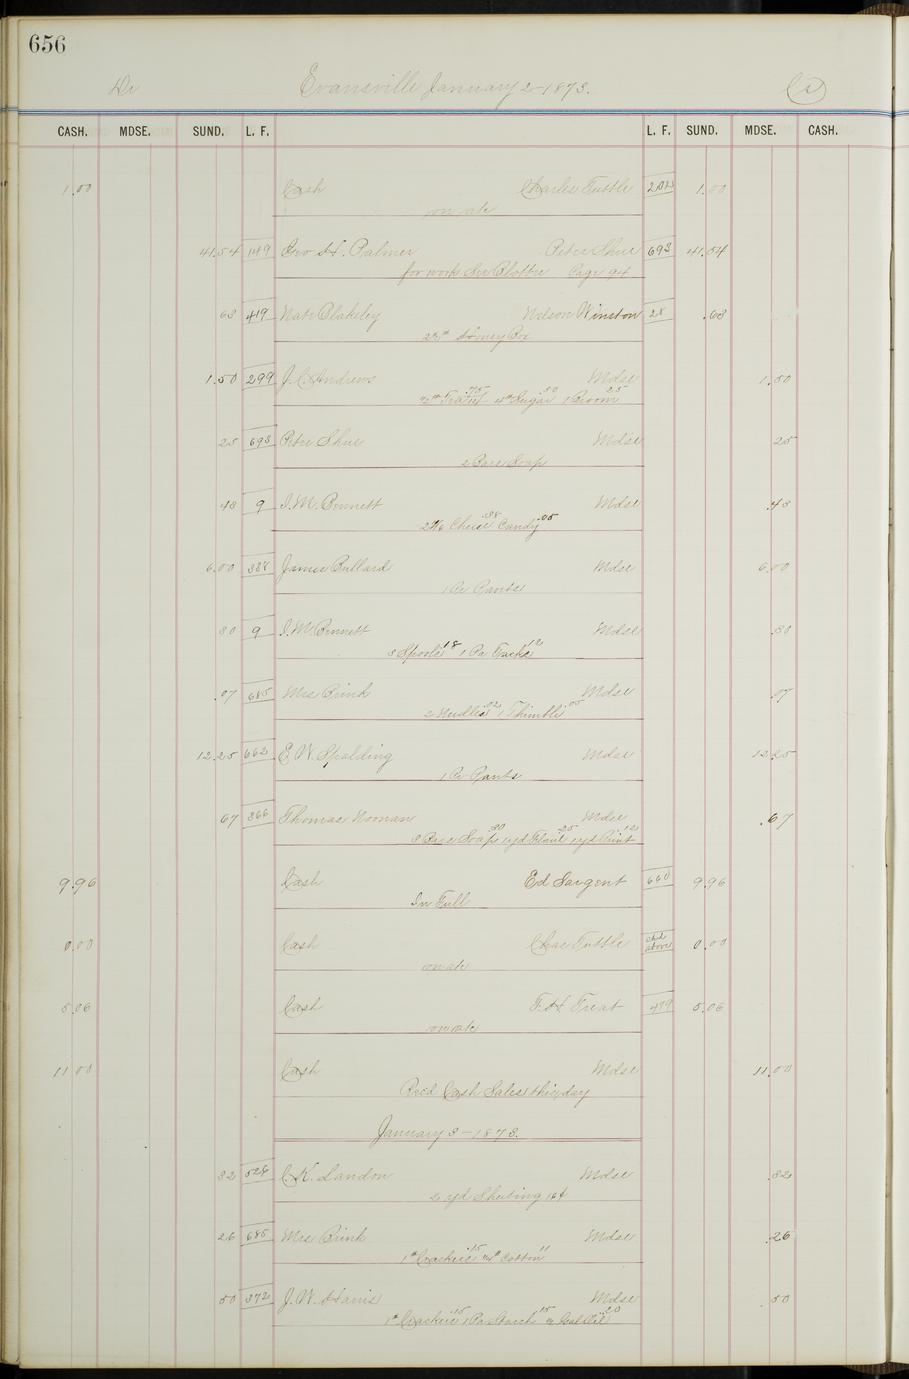 656
Dr Evansville January 2-1873. Cr
CASH. MDSE. SUND. L. F. L. F. SUND. MDSE. CASH.
1.00 Cash Charles Tuttle 202 1.00
on ac
41.54 149 Geo H. Palmer Peter Shue 693 41.54
for work See Blotter Page 94
63 419 Nate Blakeley Nelson Winston 28 .63
Honey Box
1.50 299 J. C. Andrews Mdse 1.50
Tea .75 4# Sugar .50 1 Broom .25
25 693 Peter Shue Mdse 25
2 Bars Soap
43 9 I. M. Bennett Mdse .43
Cheese .38 Candy .05
6.00 388 James Bullard Mdse 6.00
1 Pr Pants
30 9 I. M. Bennett Mdse .30
3 Spools 18 1 Pa Tacks 12
.07 685 Mrs Brink Mdse 07
2 Needles .02 1 Thimble .05
12.25 662 E. W. Spalding Mdse 12.25
1 Pr Pants
67 366 Thomas Noonan Mdse .67
3 Bars Soap .30 1 yd Flanl .25 1 yd Print .12
9.96 Cash Ed Sargent 660 9.96
In Full
0.00 Cash Chas Tuttle above 0.00
on ac
5.06 Cash F. H. Treat 479 5.06
on ac
11.00 Cash Mdse 11.00
Recd Cash Sales this day
January 3-1873.
32 528 C. K. Landon Mdse .32
2 yd Sheeting 16¢
26 685 Mrs Brink Mdse .26
1# Crackers .15 Cotton 11
50 372 J. W. Harris Mdse 50
1# Crackers .15 1 Pa Starch .15 .20